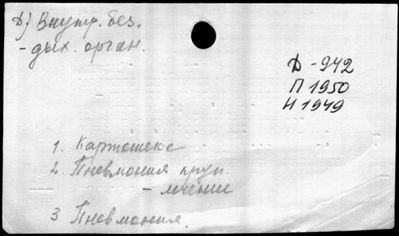 д) Внутр. без.
- дых. орган.
Д - 942
П 1950
Н 1949
1. Картотека
2. Пневмония круп
- лечение
3 Пневмония.